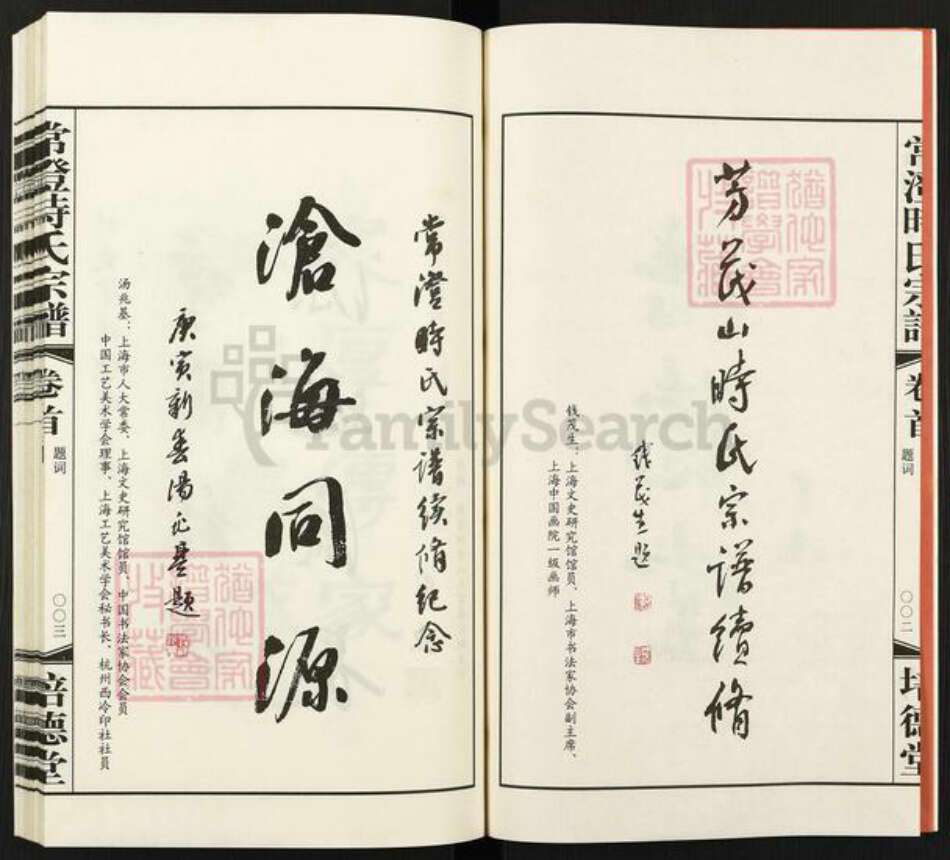 常澄時氏宗譜
卷首
题词
〇〇二
培德堂
芳茂山時氏宗谱續修
钱茂生题
钱茂生：上海文史研究馆馆员、上海市书法家协会副主席、
上海中国画院一级画师
常澄時氏宗谱续修纪念
滄海同源
庚寅新春湯兆基題
汤兆基：上海市人大常委、上海文史研究馆馆员、中国书法家协会会员
中国工艺美术学会理事、上海工艺美术学会秘书长、杭州西泠印社社员
常澄時氏宗譜
卷首
题词
〇〇三
培德堂
FamilySearch